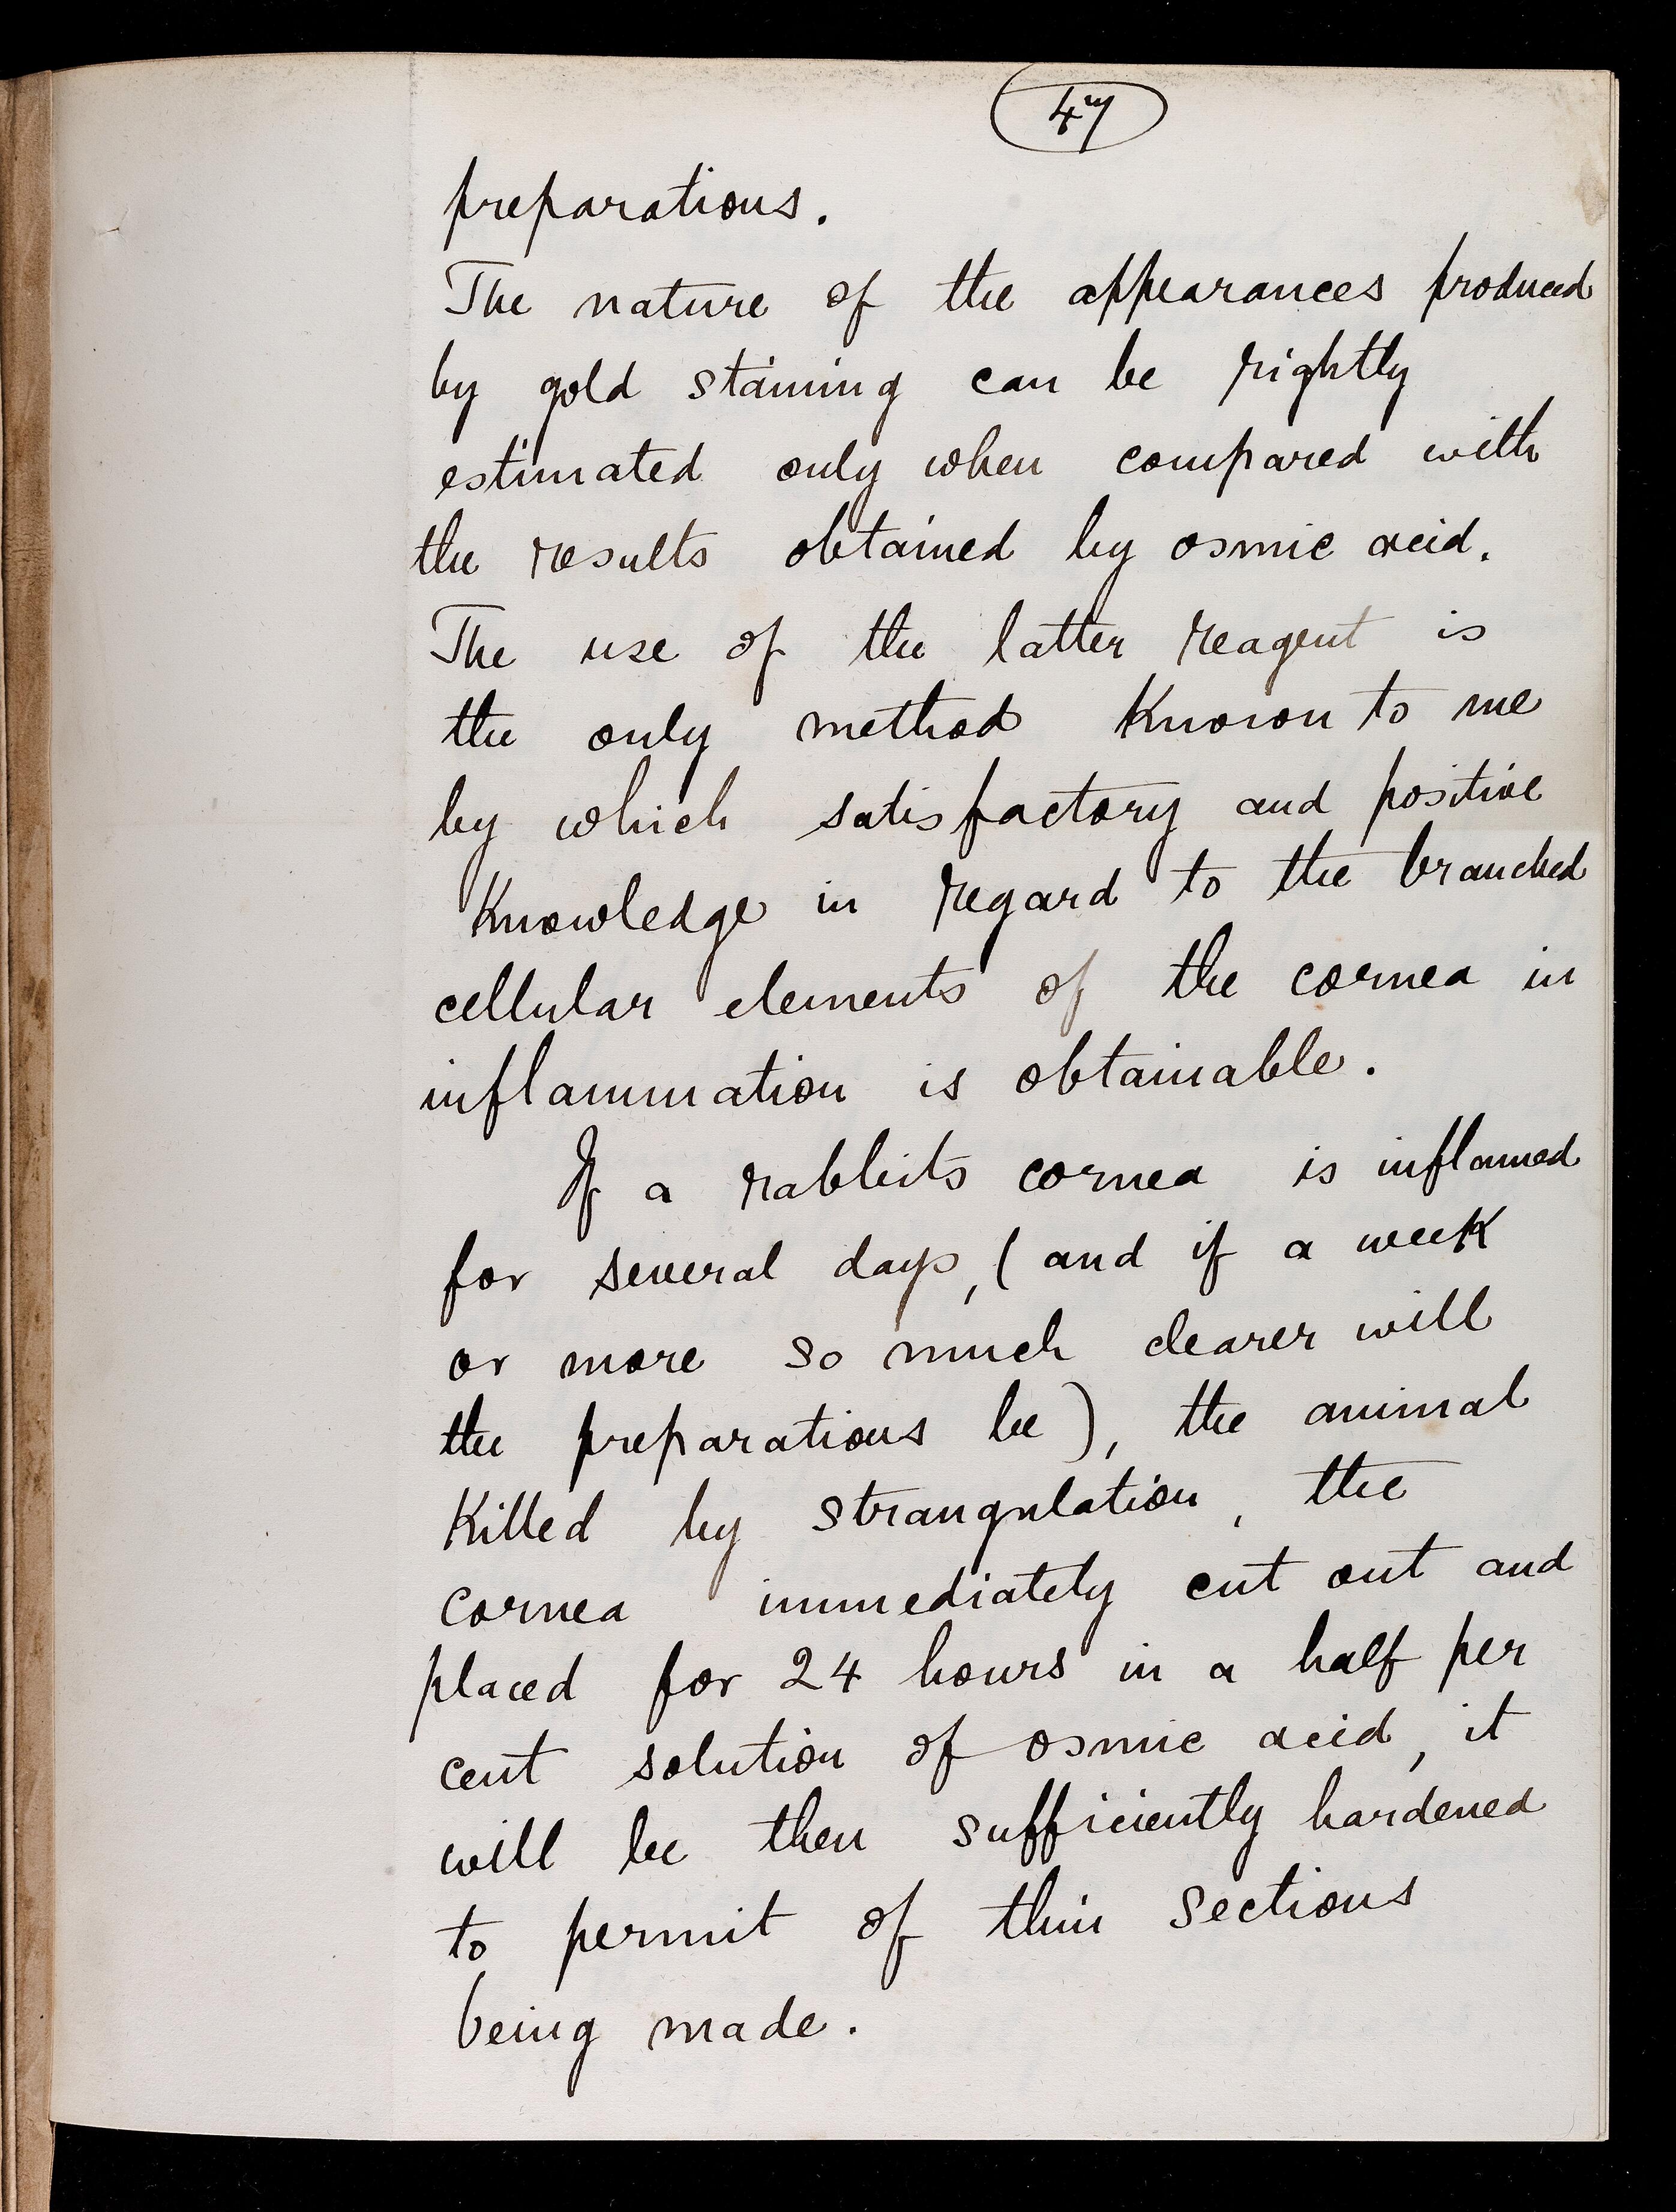 47
preparations.
The nature of the appearances produced
by gold staining can be rightly
estimated only when compared with
the results obtained by osmic acid.
The use of the latter reagent is
the only method known to me
by which satisfactory and positive
knowledge in regard to the branched
cellular elements of the cornea in
inflammation is obtainable.
If a rabbits cornea is inflamed
for several days, (and if a week
or more so much clearer will
the preparations be), the animal
killed by strangulation, the
cornea immediately cut out and
placed for 24 hours in a half per
cent solution of osmic acid, it
will be then sufficiently hardened
to permit of thin sections
being made.